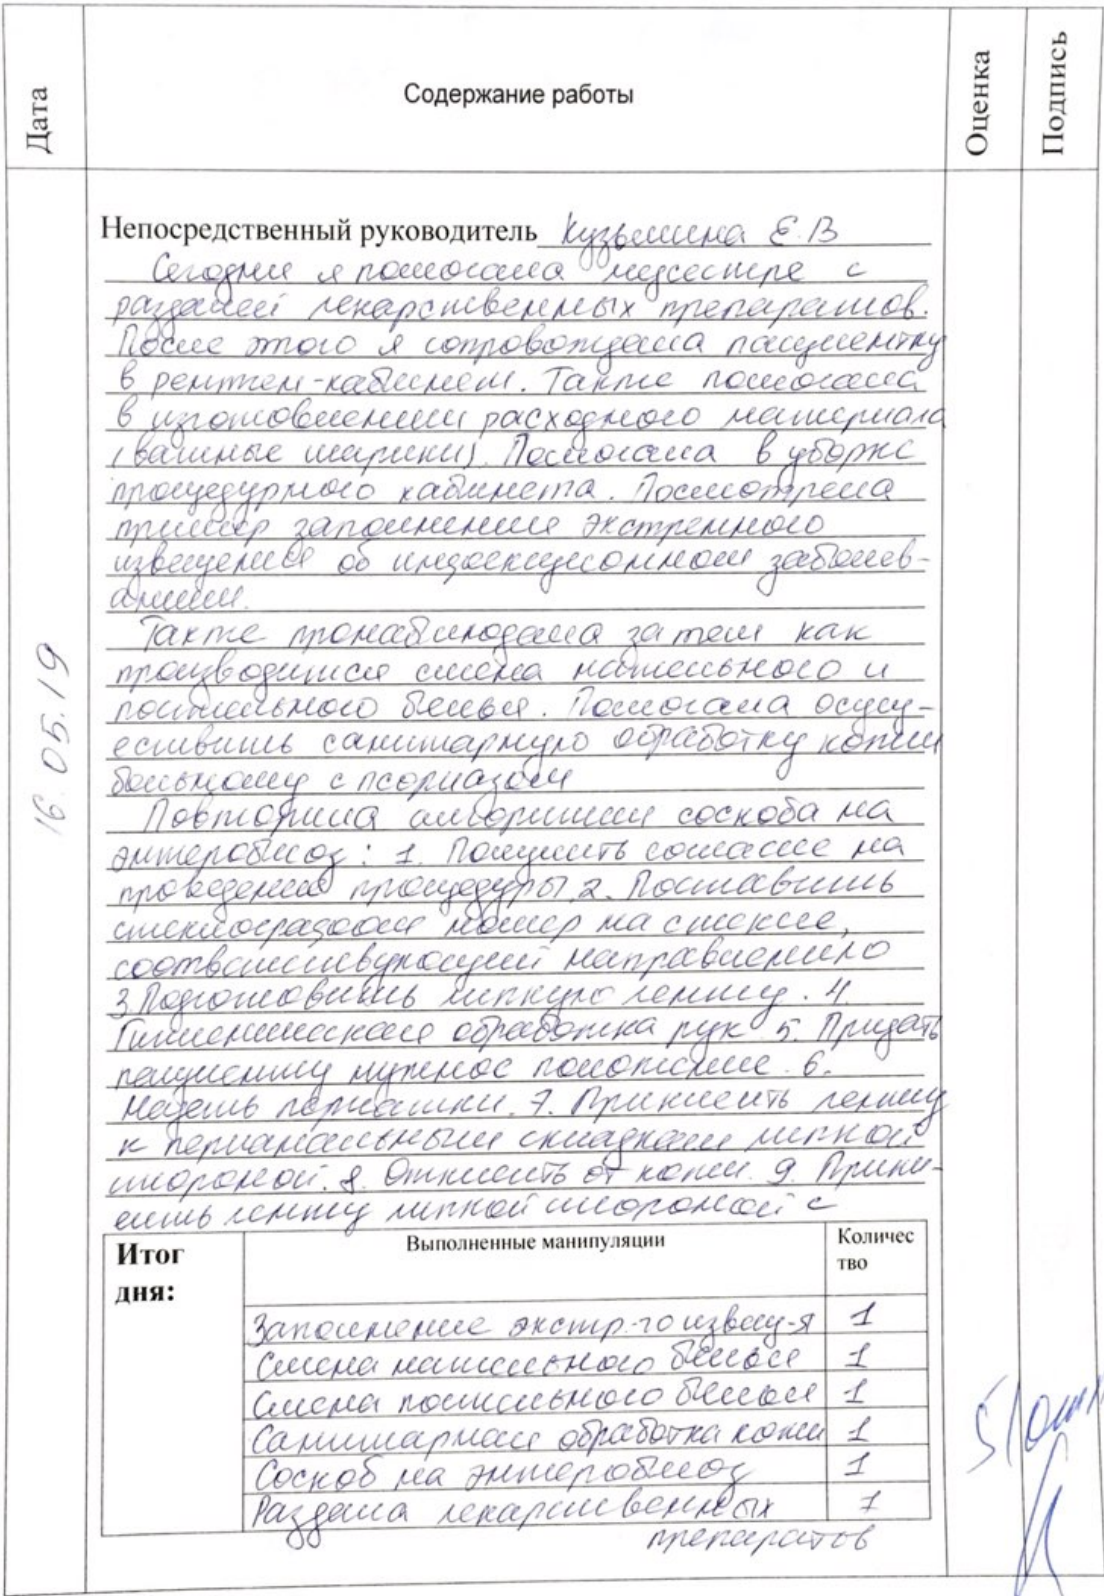 Дата
Содержание работы
Оценка
Подпись
16.05.19
Непосредственный руководитель Кузьмина Е.В
Сегодня я помогала медсестре с
раздачей лекарственных препаратов.
После этого я сопровождала пациентку
в рентген-кабинет. Также помогала
в изготовлении расходного материала
(ватные шарики). Помогала в уборке
процедурного кабинета. Посмотрела
пример заполнения экстренного
извещения об инфекционном заболев-
ании.
Также пронаблюдала за тем как
производится смена нательного и
постельного белья. Помогала осущ-
ествить санитарную обработку кожи
больному с псориазом
Повторила алгоритм соскоба на
энтеробиоз: 1. Получить согласие на
проведение процедуры 2. Поставить
стеклографом номер на стекле,
соответствующий направлению
3 Подготовить липкую ленту. 4.
Гигиеническая обработка рук 5. Придать
пациенту нужное положение. 6.
Надеть перчатки. 7. Приклеить ленту
к перианальным складкам липкой
стороной. 8. Отклеить от кожи. 9. Прикл-
еить ленту липкой стороной с
Итог дня:
Выполненные манипуляции
Количес
тво
Заполнение экстр-го извещ-я 1
Смена нательного белья 1
Смена постельного белья 1
Санитарная обработка кожи 1
Соскоб на энтеробиоз 1
Раздача лекарственных 1
препаратов
5/отл